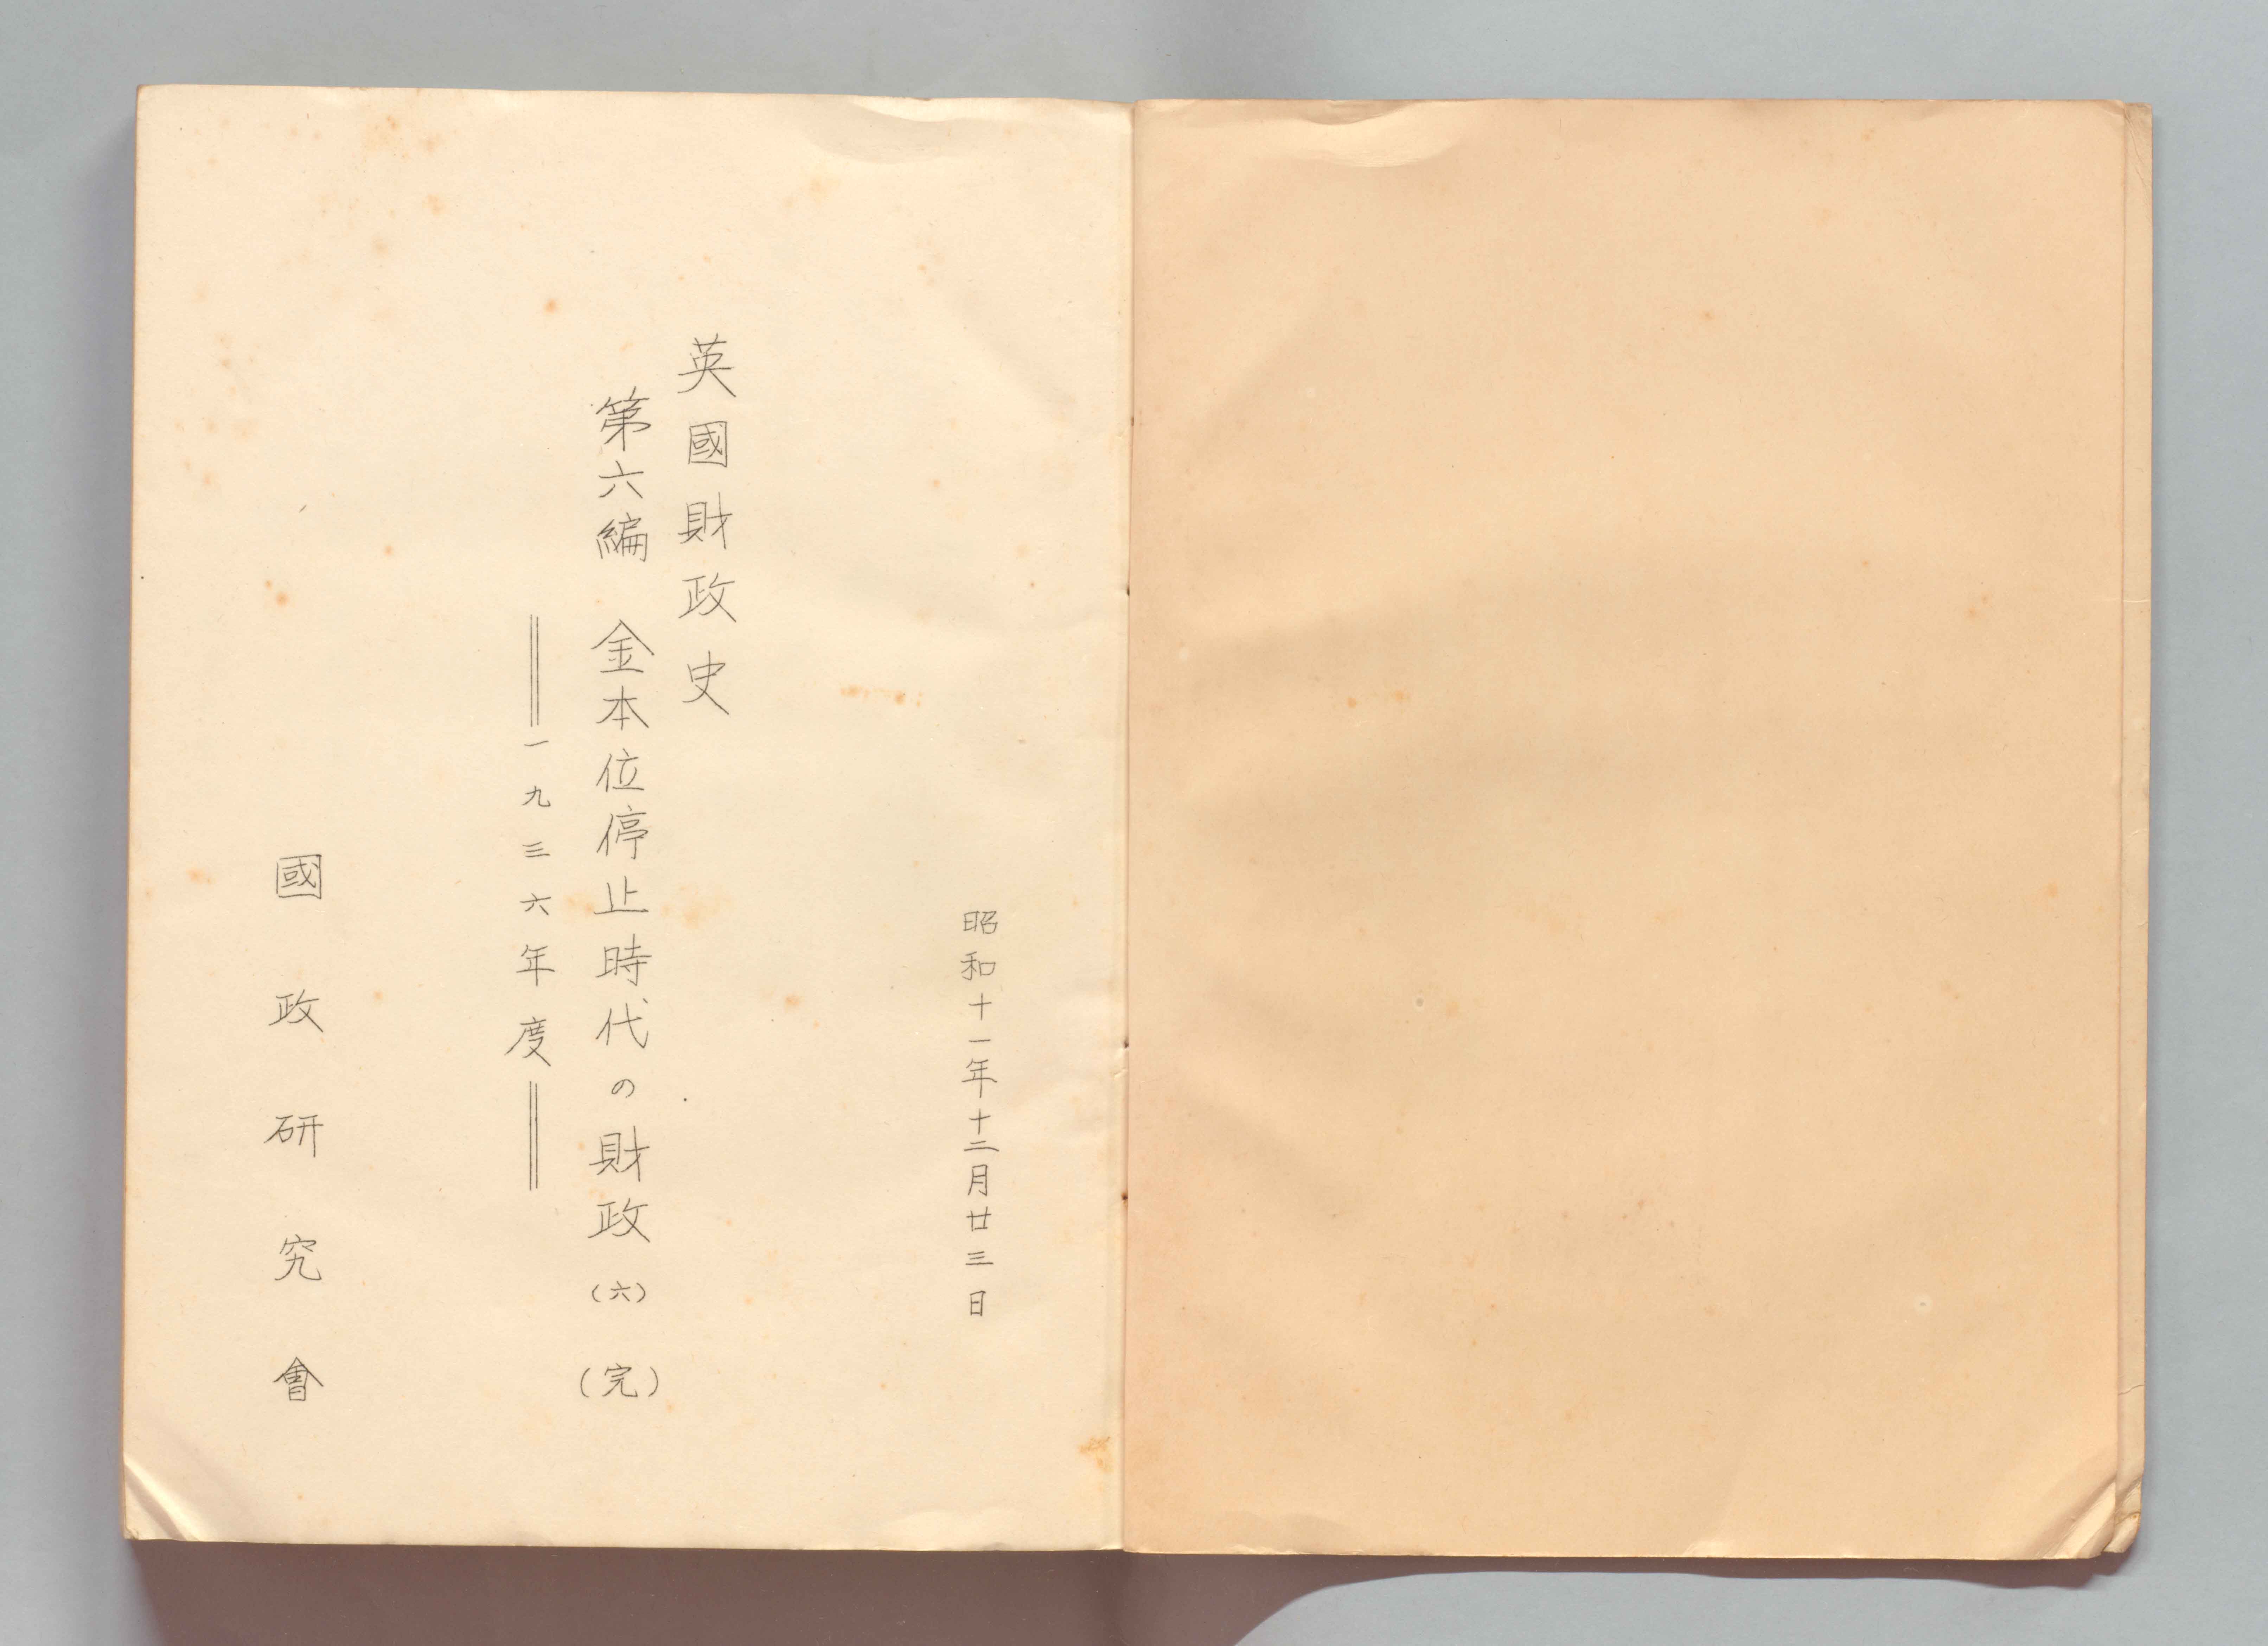 昭和十一年十二月廿三日
英國財政史
第六編 金本位停止時代の財政（六）（完）
══一九三六年度══
國政研究會